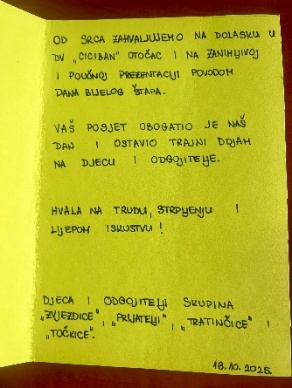 OD SRCA ZAHVALJUJEMO NA DOLASKU U
DV „CICIBAN" OTOČAC I NA ZANIMLJIVOJ
I POUČNOJ PREZENTACIJI POVODOM
DANA BIJELOG ŠTAPA.
VAŠ POSJET OBOGATIO JE NAŠ
DAN I OSTAVIO TRAJNI DOJAM
NA DJECU I ODGOJITELJE.
HVALA NA TRUDU, STRPLJENJU I
LIJEPOM ISKUSTVU!
DJECA I ODGOJITELJI SKUPINA
„ZVJEZDICE", „PRIJATELJI", „TRATINČICE" I
„TOČKICE".
18.10.2025.